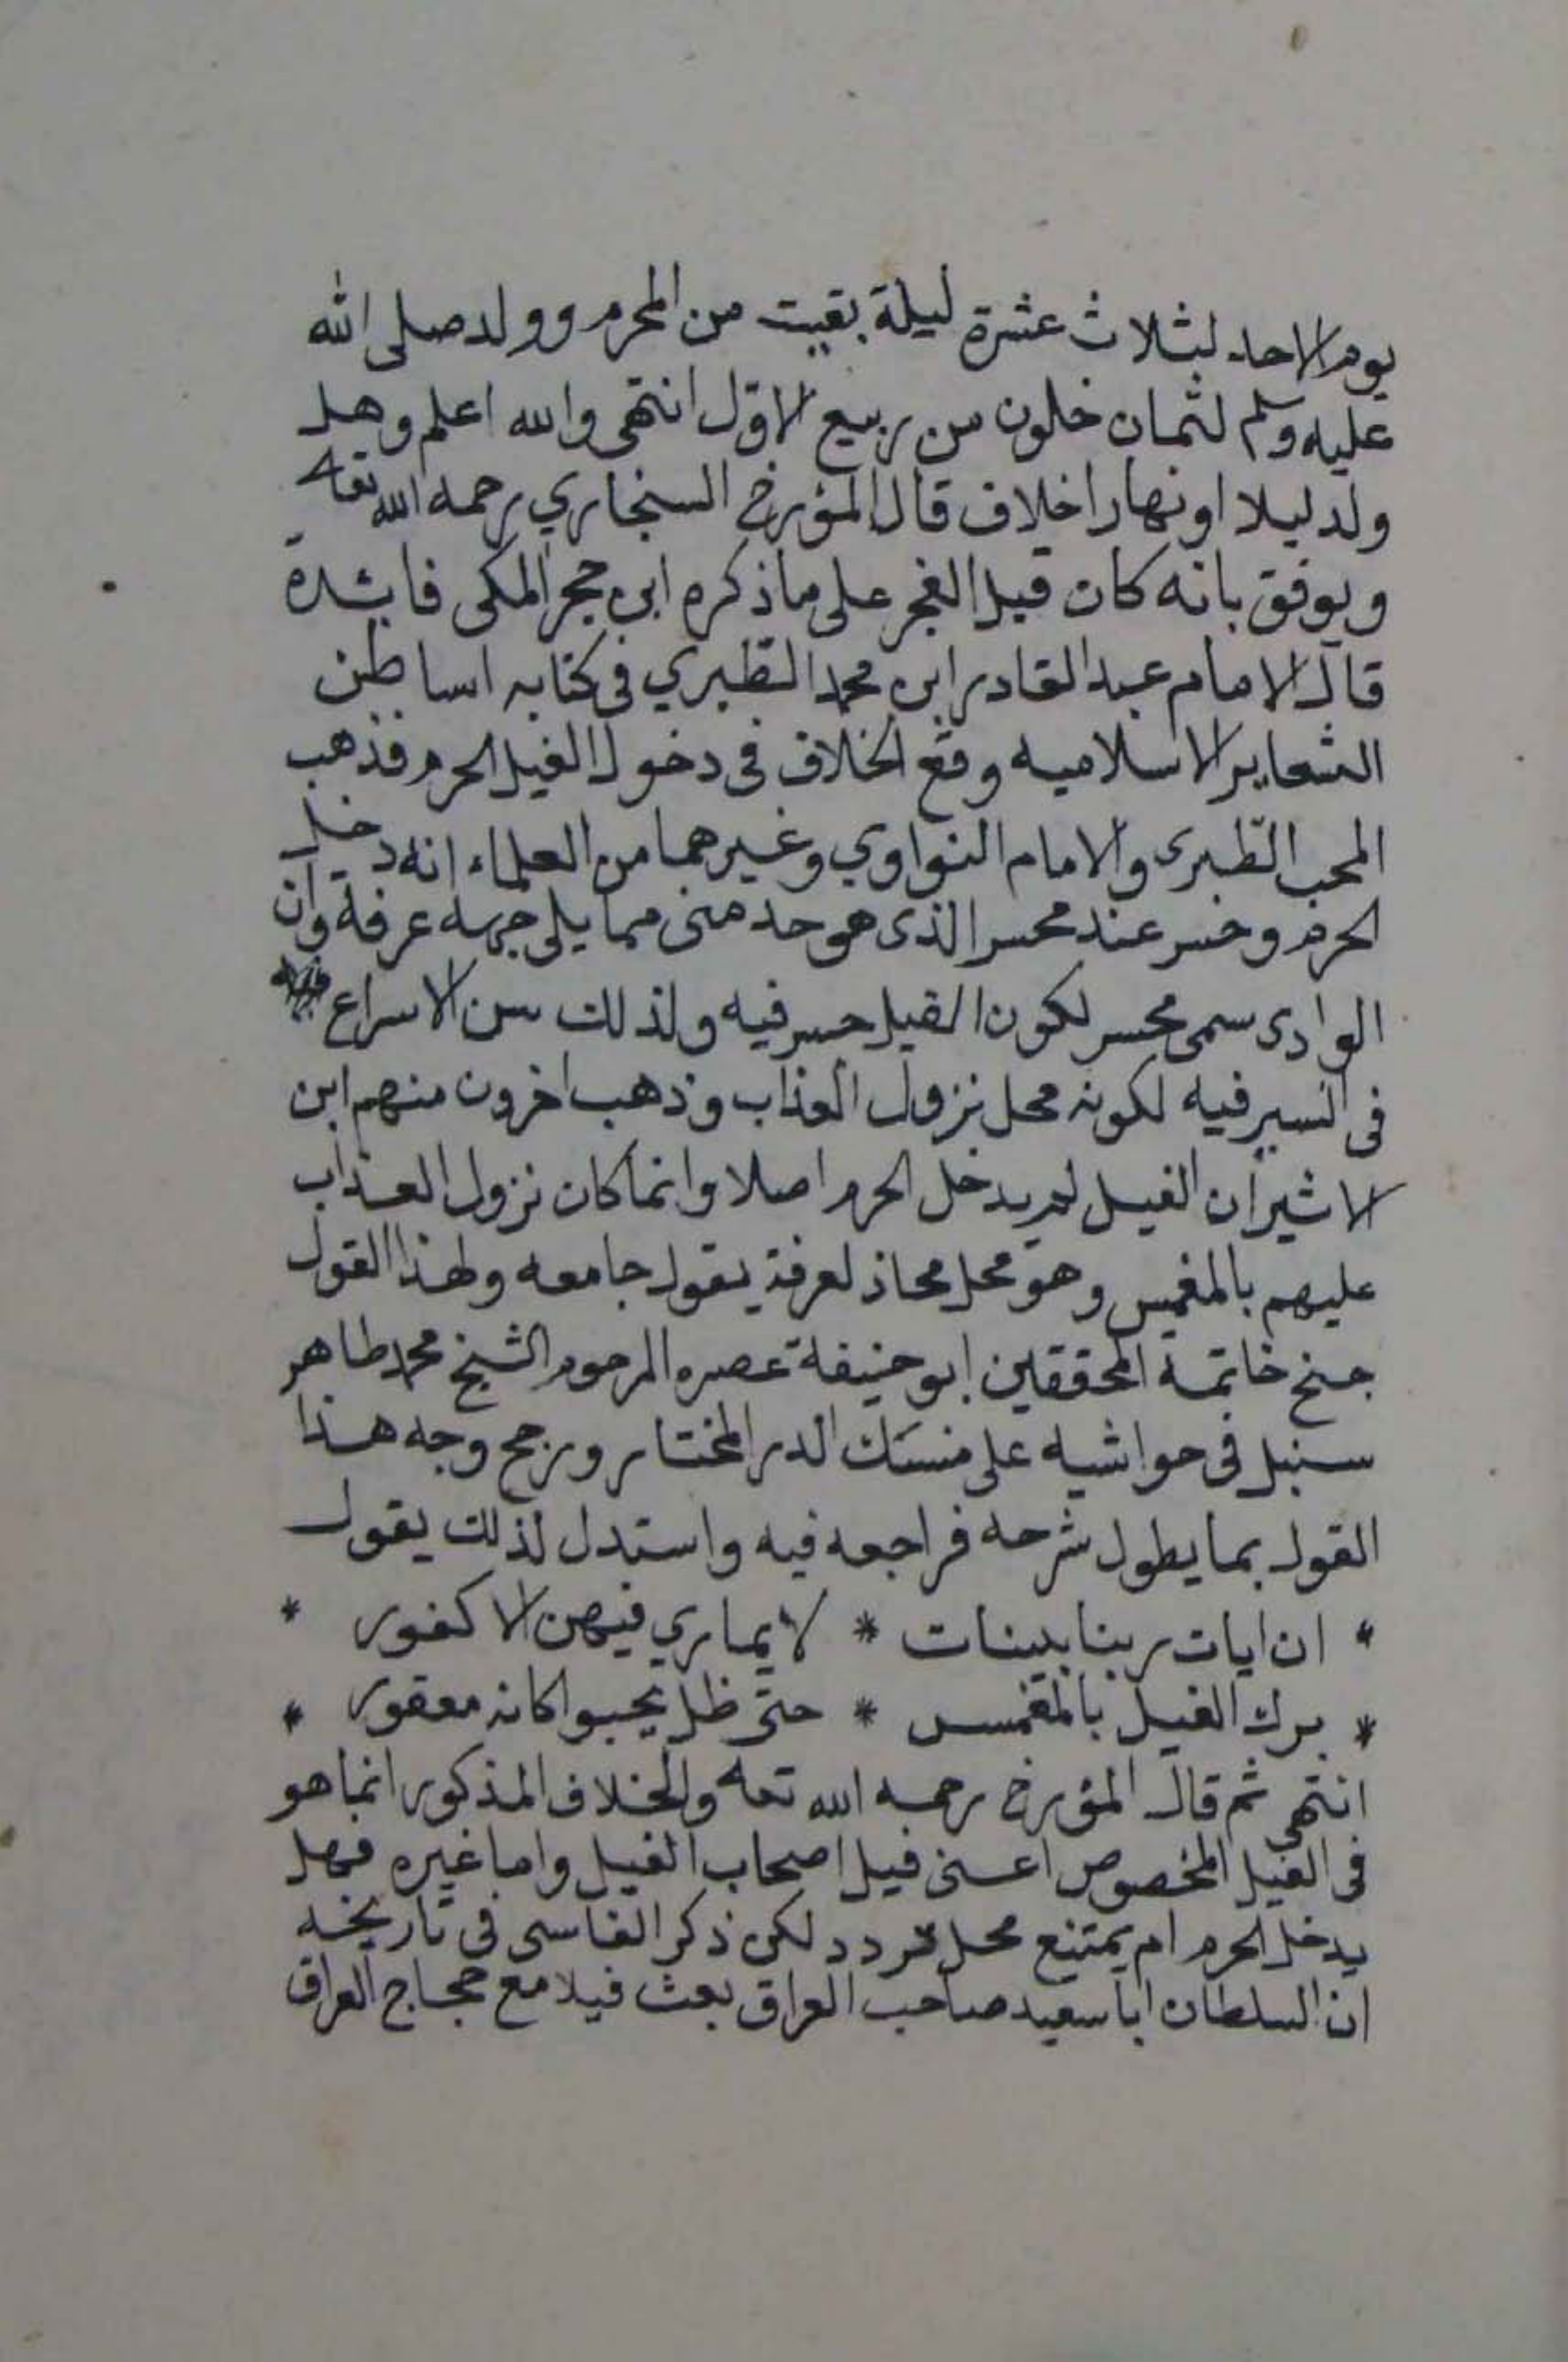 يوم الاحد لثلاث عشرة ليلة بقيت من المحرم وولد صلى الله
عليه وسلم لثمان خلون من ربيع الاول انتهى والله اعلم وهل
ولد ليلا او نهارا خلاف قال المؤرخ السنجاري رحمه الله تعا
ويوفق بانه كان قبيل الفجر على ما ذكره ابن حجر المكى فائدة
قال الامام عبد القادر ابن محمد الطبري فى كتابه اساطن
الشعاير الاسلاميه وقع الخلاف فى دخول الفيل الحرم فذهب
المحب الطبرى والامام النواوي وغيرهما من العلماء انه دخل
الحرم وخسر عند محسر الذى هو حد منى مما يلى جهه عرفة وان
الوادى سمى محسر لكون الفيل حسر فيه ولذلك سن الاسراع
فى السير فيه لكونه محل نزول العذاب وذهب اخرون منهم ابن
الاثير ان الفيل لم يدخل الحرم اصلا وانما كان نزول العذاب
عليهم بالمغمس وهو محل محاذ لعرفة يقول جامعه ولهذا القول
جنح خاتمة المحققين ابو حنيفة عصره المرحوم الشيخ محمد طاهر
سنبل فى حواشيه على منسك الدر المختار ورجح وجه هذا
القول بما يطول شرحه فراجعه فيه واستدل لذلك يقول
* ان ايات ربنا بينات * لا يماري فيهن الا كفور *
* برك الفيل بالمغمس * حتى ظل يحبوا كانه معقور *
انتهى ثم قال المؤرخ رحمه الله تعه والخلاف المذكور انما هو
فى الفيل المخصوص اعنى فيل اصحاب الفيل واما غيره فهل
يدخل الحرم ام يمتنع محل تردد لكن ذكر الفاسى فى تاريخه
ان السلطان ابا سعيد صاحب العراق بعث فيلا مع حجاج العراق